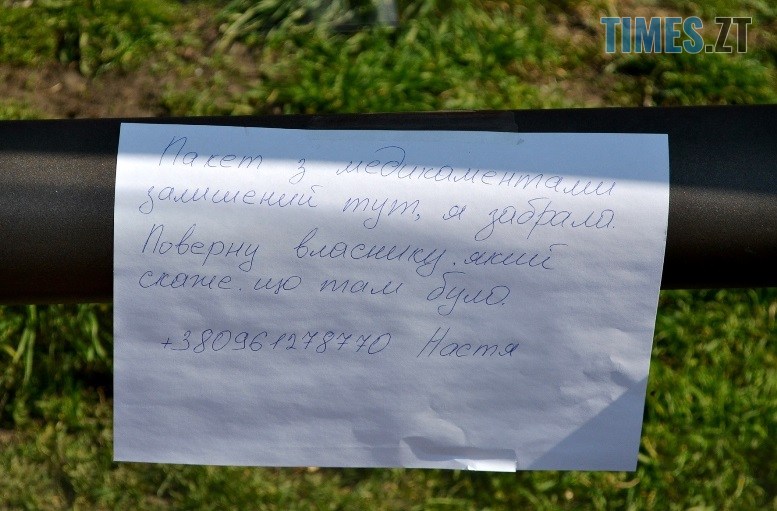 TIMES.ZT
Пакет з медикаментами
залишений тут, я забрала.
Поверну власнику. який
скаже. що там було.
+380961278770 Настя